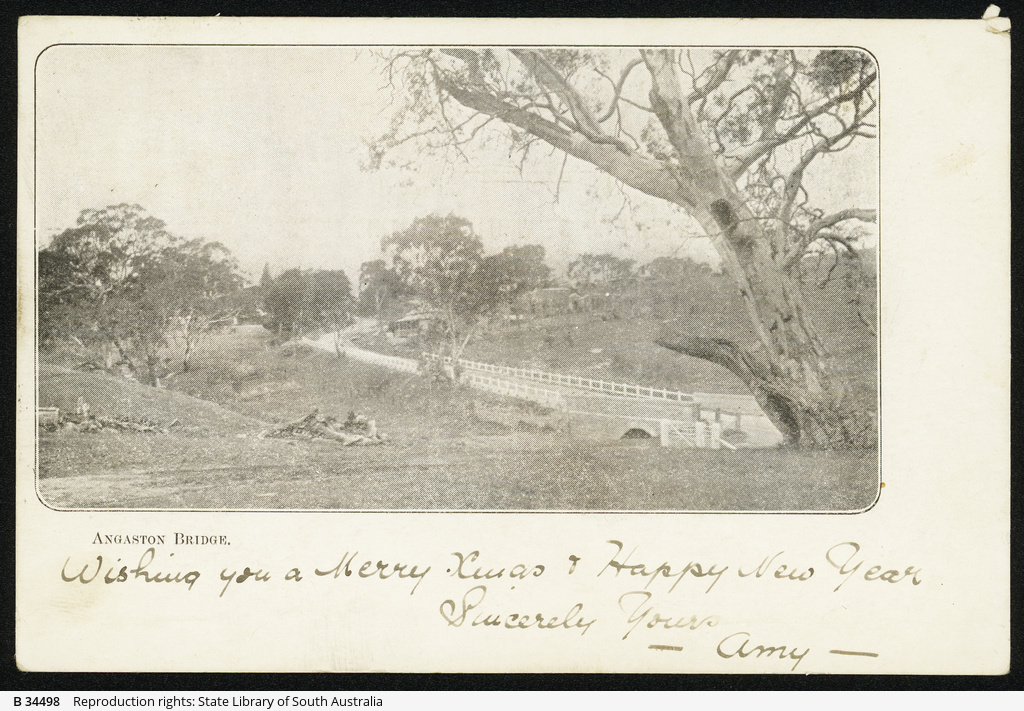 ANGASTON BRIDGE.
Wishing you a Merry Xmas & Happy New Year
Sincerely Yours
— Amy —
B 34498 Reproduction rights: State Library of South Australia